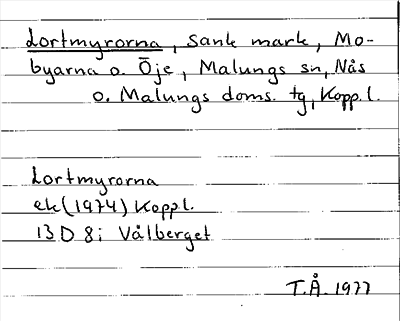 Lortmyrorna, sank mark, Mo-
byarna o. Öje, Malungs sn, Nås
o. Malungs doms. tg, Kopp.l.
Lortmyrorna
ek (1974) Kopp.l.
13 D 8i Vålberget
T.Å. 1977